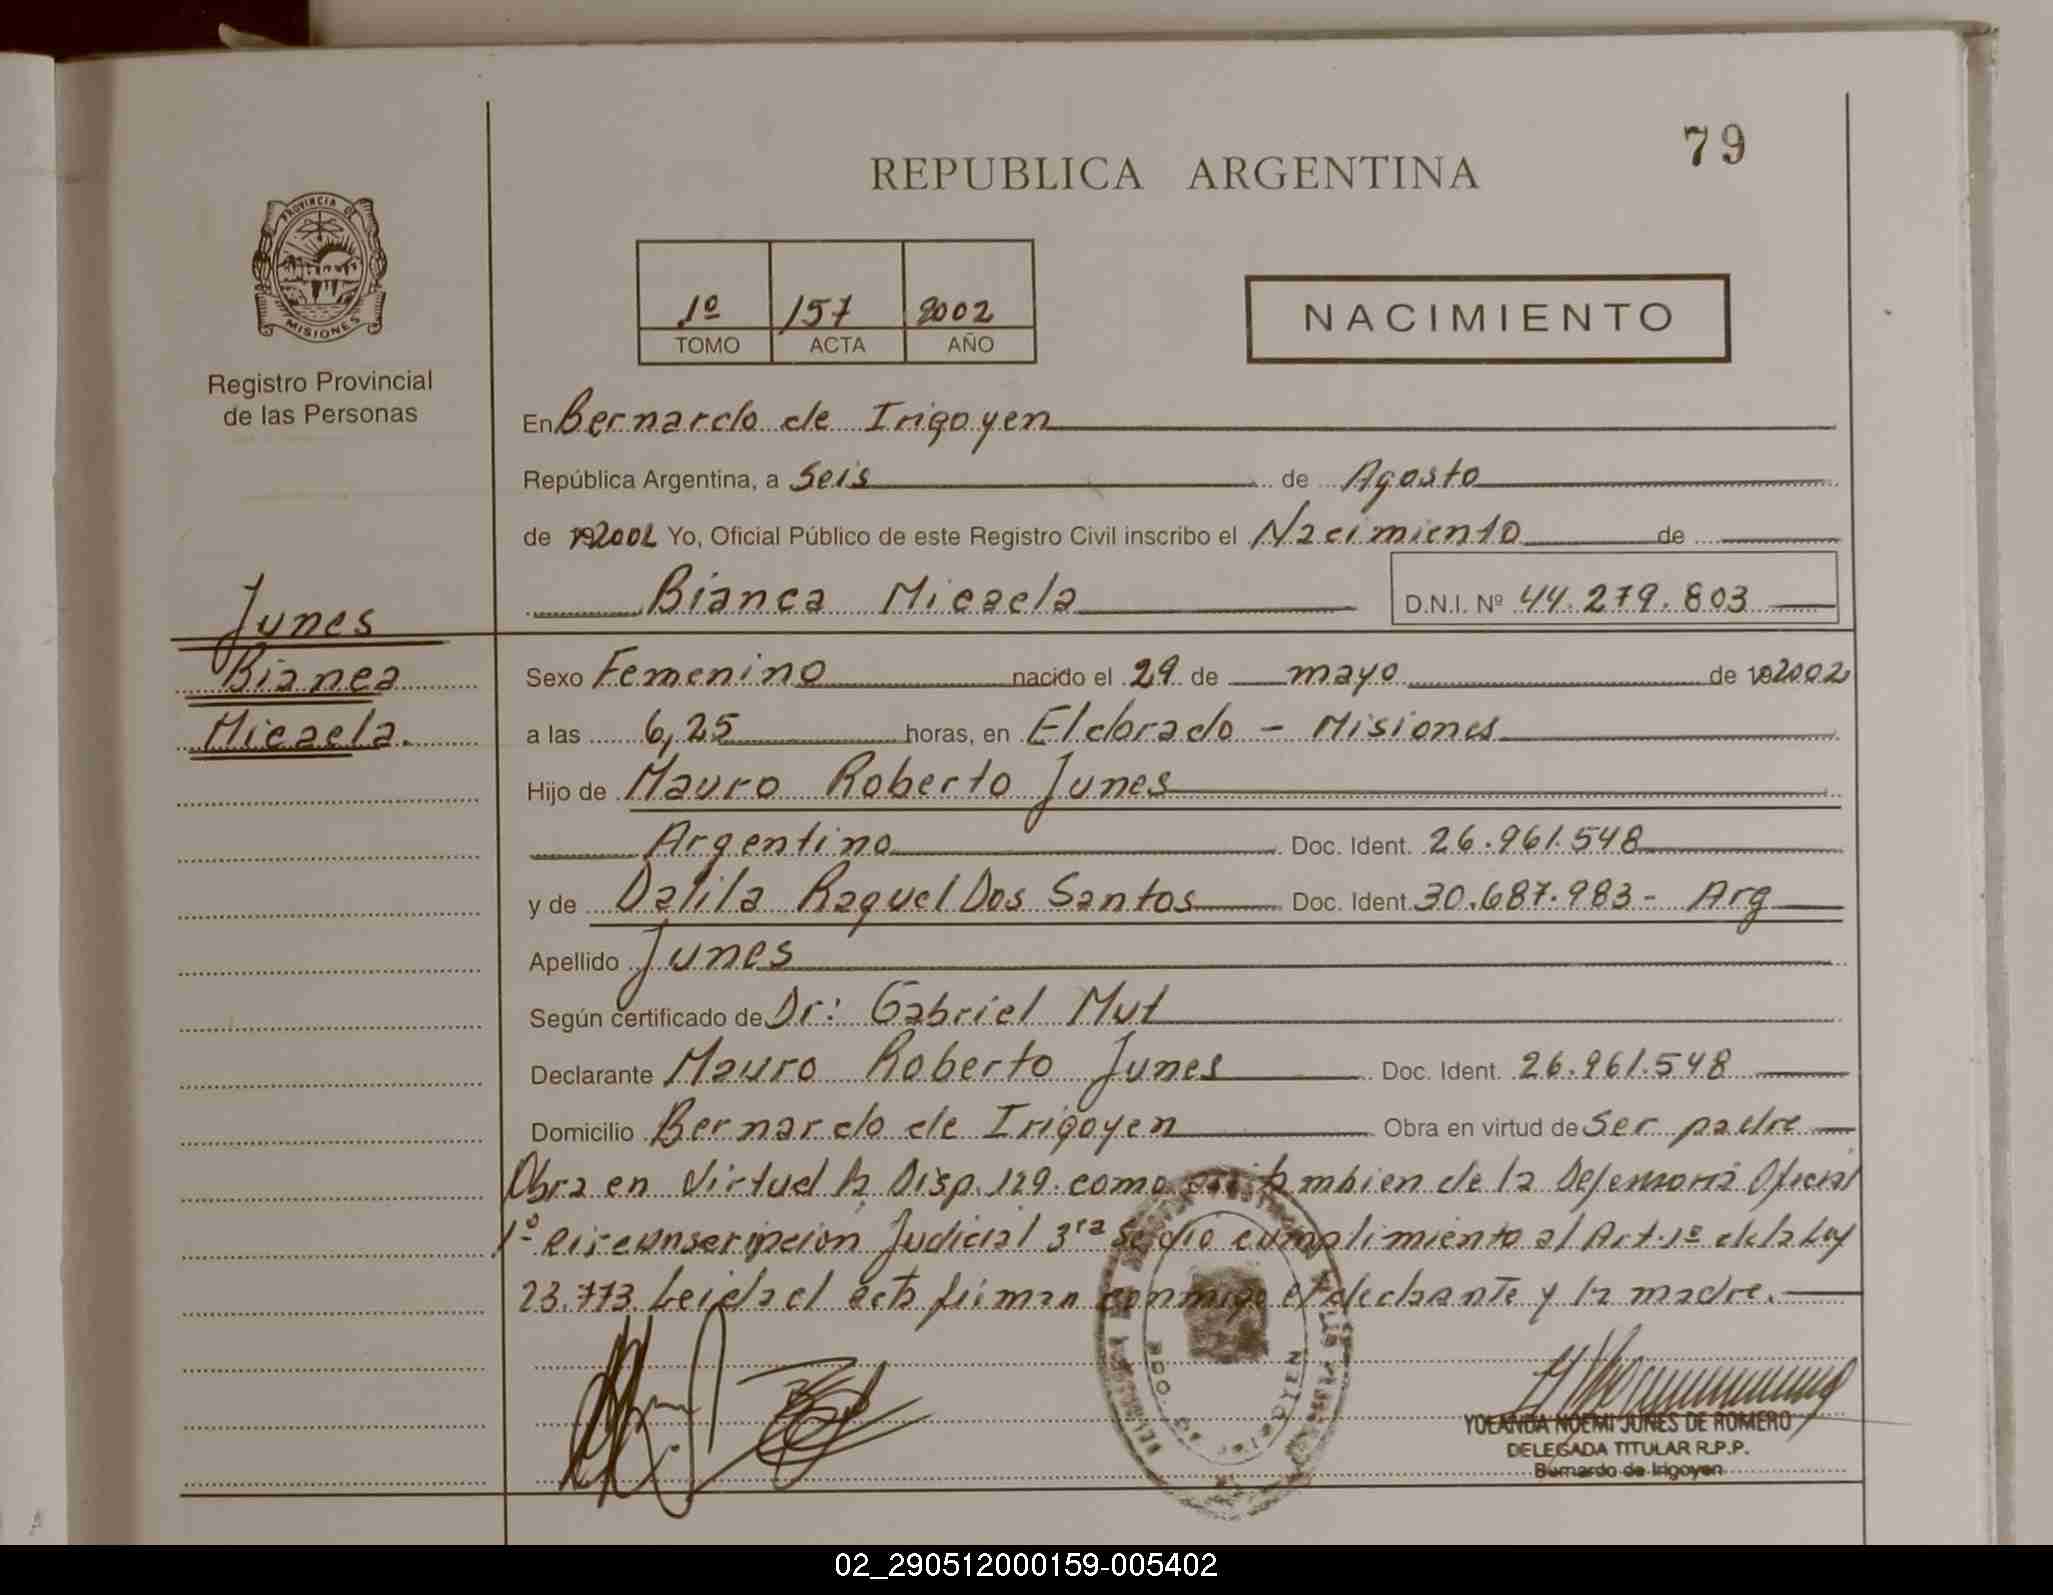 79
REPUBLICA ARGENTINA
PROVINCIA DE
MISIONES
1º 157 2002
TOMO ACTA AÑO
NACIMIENTO
Registro Provincial
de las Personas
En Bernardo de Irigoyen
República Argentina, a Seis de Agosto
de 192002 Yo, Oficial Público de este Registro Civil inscribo el Nacimiento de
Bianca Micaela D.N.I. Nº 44.279.803
Junes
Bianca
Micaela.
Sexo Femenino nacido el 29 de mayo de 192002
a las 6,25 horas, en Eldorado - Misiones
Hijo de Mauro Roberto Junes
Argentino Doc. Ident. 26.961.548
y de Dalila Raquel Dos Santos Doc. Ident. 30.687.983 - Arg
Apellido Junes
Según certificado de Dr: Gabriel Mut
Declarante Mauro Roberto Junes Doc. Ident. 26.961.548
Domicilio Bernardo de Irigoyen Obra en virtud de Ser padre
Obra en virtud la Disp. 129. como asi tambien de la Defensoria Oficial
1º Circunscripción Judicial 3ra se dio cumplimiento al Art. 1º de la Ley
23.773. Leida el acta firman conmigo el declarante y la madre.
YOLANDA NOEMI JUNES DE ROMERO
DELEGADA TITULAR R.P.P.
Bernardo de Irigoyen
02_290512000159-005402